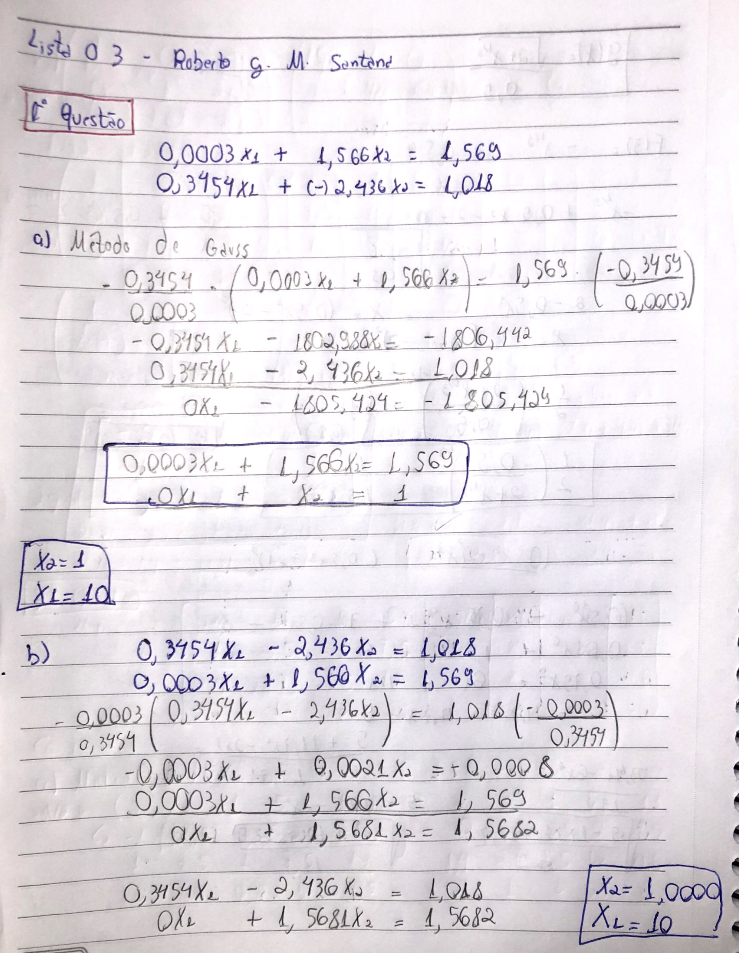 Lista 03 - Roberto G. M. Santana
1ª Questão
0,0003x₁ + 1,566x₂ = 1,569
0,3454x₁ + (-)2,436x₂ = 1,018
a) Método de Gauss
- 0,3454/0,0003 · (0,0003x₁ + 1,566x₂) = 1,569 · (-0,3454/0,0003)
-0,3454x₁ - 1802,988x = -1806,442
0,3454x₁ - 2,436x₂ = 1,018
0x₁ - 1805,424 = -1805,424
0,0003x₁ + 1,566x₂ = 1,569
0x₁ + x₂ = 1
x₂ = 1
x₁ = 10
b) 0,3454x₁ - 2,436x₂ = 1,018
0,0003x₁ + 1,566x₂ = 1,569
- 0,0003/0,3454 (0,3454x₁ - 2,436x₂) = 1,018 (-0,0003/0,3454)
-0,0003x₁ + 0,0021x₂ = -0,0008
0,0003x₁ + 1,566x₂ = 1,569
0x₁ + 1,5681x₂ = 1,5682
0,3454x₁ - 2,436x₂ = 1,018
0x₁ + 1,5681x₂ = 1,5682
x₂ = 1,0000
x₁ = 10